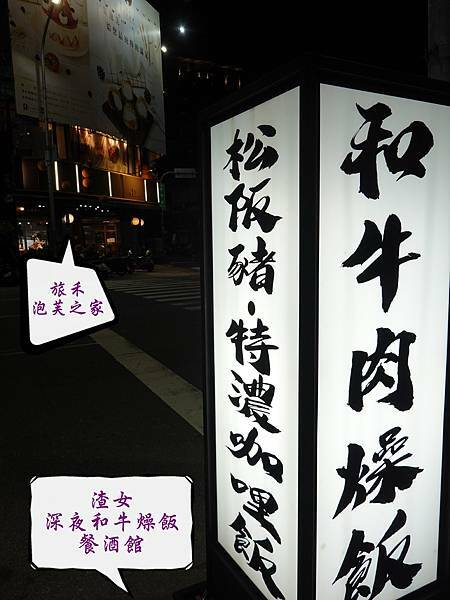 和牛肉燥飯
松阪豬・特濃咖哩飯
旅禾
泡芙之家
渣女
深夜和牛燥飯
餐酒館